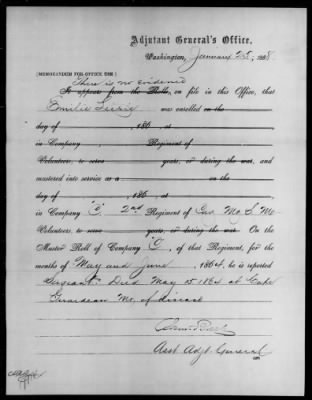 Adjutant General's Office,
Washington, January 25, 1868
[MEMORANDUM FOR OFFICE USE]
There is no evidence
It appears from the Rolls, on file in this Office, that
Emilie was enrolled on the
day of , 186 , at
in Company , Regiment of
Volunteers, to serve years, or during the war, and
mustered into service as a on the
day of , 186 , at ,
in Company "C", 2nd Regiment of Cav. Mo. S. M.
Volunteers, to serve years, or during the war. On the
Muster Roll of Company C, of that Regiment, for the
months of May and June, 1864, he is reported
Sergeant Died May 15 1864 at Cape
Girardeau Mo. of disease
Asst Adjt. General